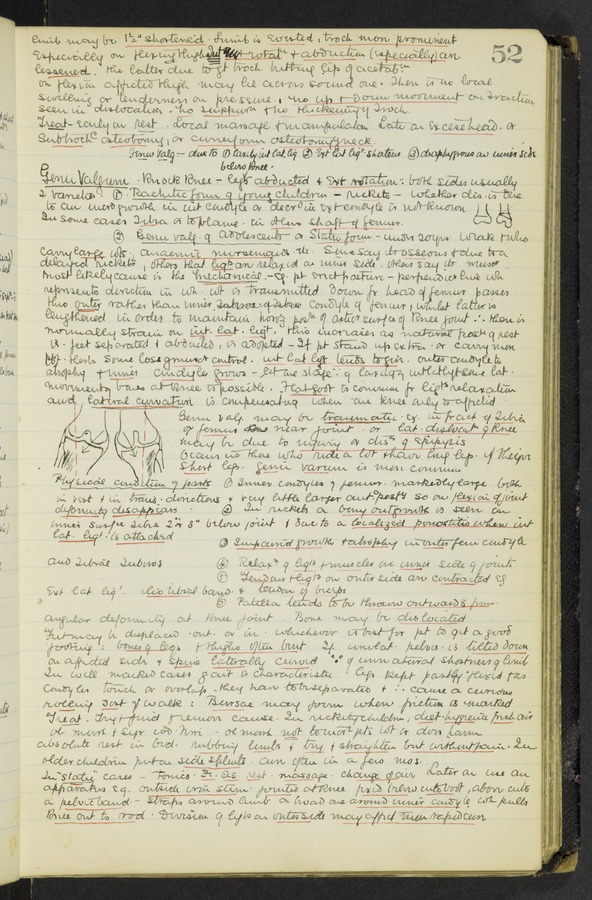 52
limb may be 1½" shortened. Limb is Everted, troch more prominent
Especially on flexing thigh & rotatn & abduction (especially) are
lessened. The latter due to gt troch hitting lip of acetabm
on flexion afflicted thigh may lie across sound one. There is no local
swelling or tenderness on pressure, & no up & down movement on traction
seen in dislocation. No suppurn & no thickening of troch.
Treat - early on rest. Local massage & manipulation Late on Excise head. or
Subtrochc osteotomy, or cuneiform osteotomy of neck.
Genu Valg - due to ① laxity int lat lig ② Ext lat ligt shortens ③ diaphy grows on inner side
below knee
Genu Valgum. Knock Knee - legs abducted & Ext rotation: both sides usually
2 varieties ① Rachitic form of young children - Rickets - whether dis. is due
to an incrd growth in int condyle or decrd in ext condyle is not known
In some cases Tibia is to blame. in others shaft of femur.
② Genu valg. of adolescents or Static form - under 20yrs. weak & who
carry large wts, anaemic nursemaids etc. Some say is osseous & due to a
delayed rickets, others that ligts are relaxed on inner side. others say it muscr
most likely cause is the mechanical - eg pt erect posture - perpendicr line wh
represents direction in wh. wt is transmitted down fr head of femur passes
thro outer rather than inner condyle of femur, whilst latter is
lengthened in order to maintain horizl posn of articr surface of knee joint ∴ there is
normally strain on int. lat. ligt. this increases as natural posn of rest
ie. feet separated & abducted, is adopted - If pt stand up extra. or carry more
wt. there's some loss of muscr control. int lat ligt tends to give. outer condyle to
atrophy & inner condyle grows - lat. stage of laxity of int lat lat.
movements at knee is possible. Flat foot is common fr ligts relaxation
and lateral curvature is compensating when one knee only is afflicted
Genu valg. may be traumatic eg. in fract of Tibia
or femur near joint. or lat. dislocatn of knee
may be due to injury or disn of epiphysis
Occurs in those who ride a lot & have long legs. If they're
short legs. Genu varum is more common
Physical condition of parts ① Inner condyle of femur. markedly large both
in vert & in trans. directions & very little larger antr postr so on flexion of joint
deformity disappears. ② In rickets a bony outgrowth is seen on
inner surface tibia 2" or 3" below joint & due to a localized periostitis where int
lat. ligt. is attached
③ Impaired growth & atrophy in outer fem condyle
and tibial tuberos
④ Relaxn of ligts & muscles on inner side of joints
⑤ Tendons & ligts on outer side are contracted eg
Ext lat ligt. ilio tibial band & tendon of biceps
⑥ Patella tends to be thrown outwards from
angular deformity at knee joint. Bone may be dislocated
Feet may be displaced out. or in. whichever is best for pt to get a good
footing; bones of legs & thighs often bent If unilat. pelvis is tilted down
on affected side & spine laterally curved of unnatural shortness of limb
In well marked cases gait is characteristic legs kept partly flexed
condyles touch or overlap. they have to be separated & ∴ cause a curious
rolling sort of walk: Bursae may form where friction is marked
Treat. Try & find & remove cause. In rickety children, diet hygiene fresh air
ol morrh & Syr iod Ferri - ol morrh not to hurt pts wt or does harm
absolute rest in bed. rubbing limbs & try & straighten but without pain. In
older children put on side splints. cure often in a few mos.
In "static" cases - tonics. rest. massage. change of air Later on use an
apparatus eg. outside iron stem. jointed at knee fixed below into boot, above into
a pelvic band - straps around limb & broad one around inner condyle wh pulls
knee out to rod. Division of ligts on outer side may afford more rapid cure